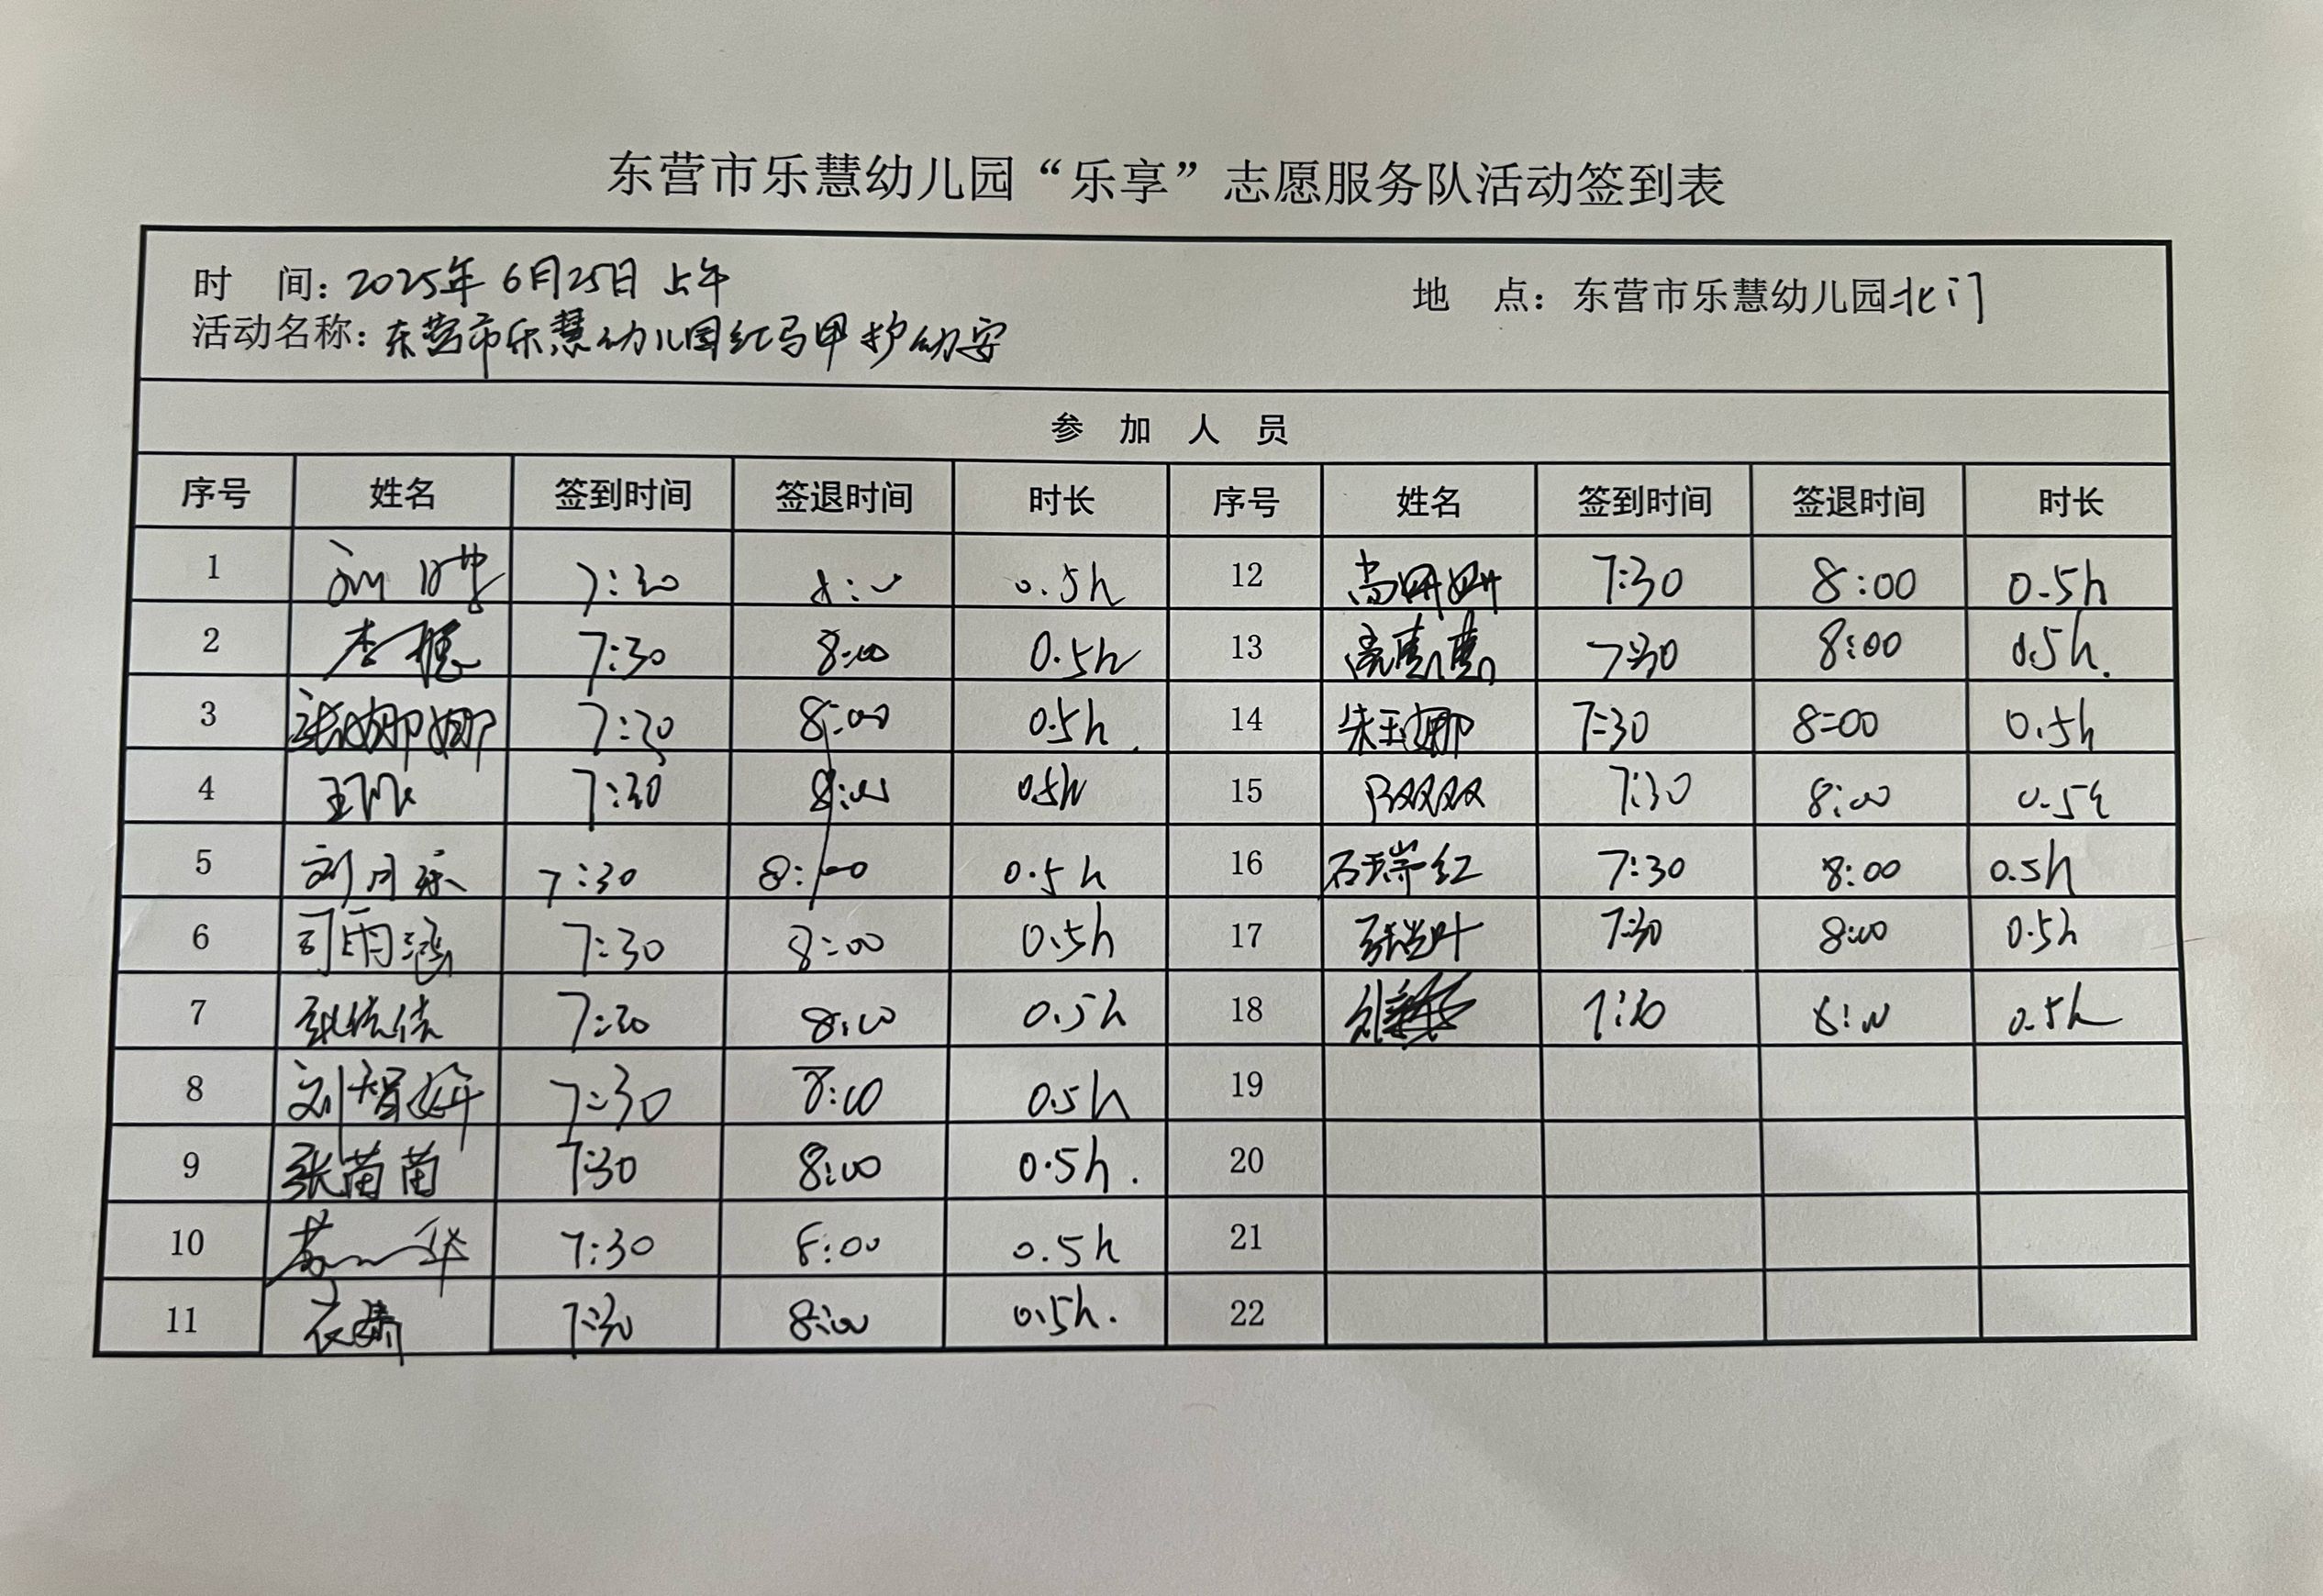 东营市乐慧幼儿园“乐享”志愿服务队活动签到表
时 间：2025年6月25日 上午 地 点：东营市乐慧幼儿园北门
活动名称：东营市乐慧幼儿园红马甲护幼安
参 加 人 员
序号 姓名 签到时间 签退时间 时长 序号 姓名 签到时间 签退时间 时长
1 刘 7:30 8:00 0.5h 12 尚妍妍 7:30 8:00 0.5h
2 李 7:30 8:00 0.5h 13 7:30 8:00 0.5h.
3 张娜娜 7:30 8:00 0.5h. 14 朱玉娜 7:30 8:00 0.5h
4 王 7:30 8:00 0.5h 15 双双 7:30 8:00 0.5h
5 刘月乐 7:30 8:00 0.5h 16 石瑞红 7:30 8:00 0.5h
6 司雨涵 7:30 8:00 0.5h 17 张 叶 7:30 8:00 0.5h
7 7:30 8:00 0.5h 18 7:30 8:00 0.5h
8 刘智妍 7:30 8:00 0.5h 19
9 张苗苗 7:30 8:00 0.5h. 20
10 华 7:30 8:00 0.5h 21
11 衣婧 7:30 8:00 0.5h. 22